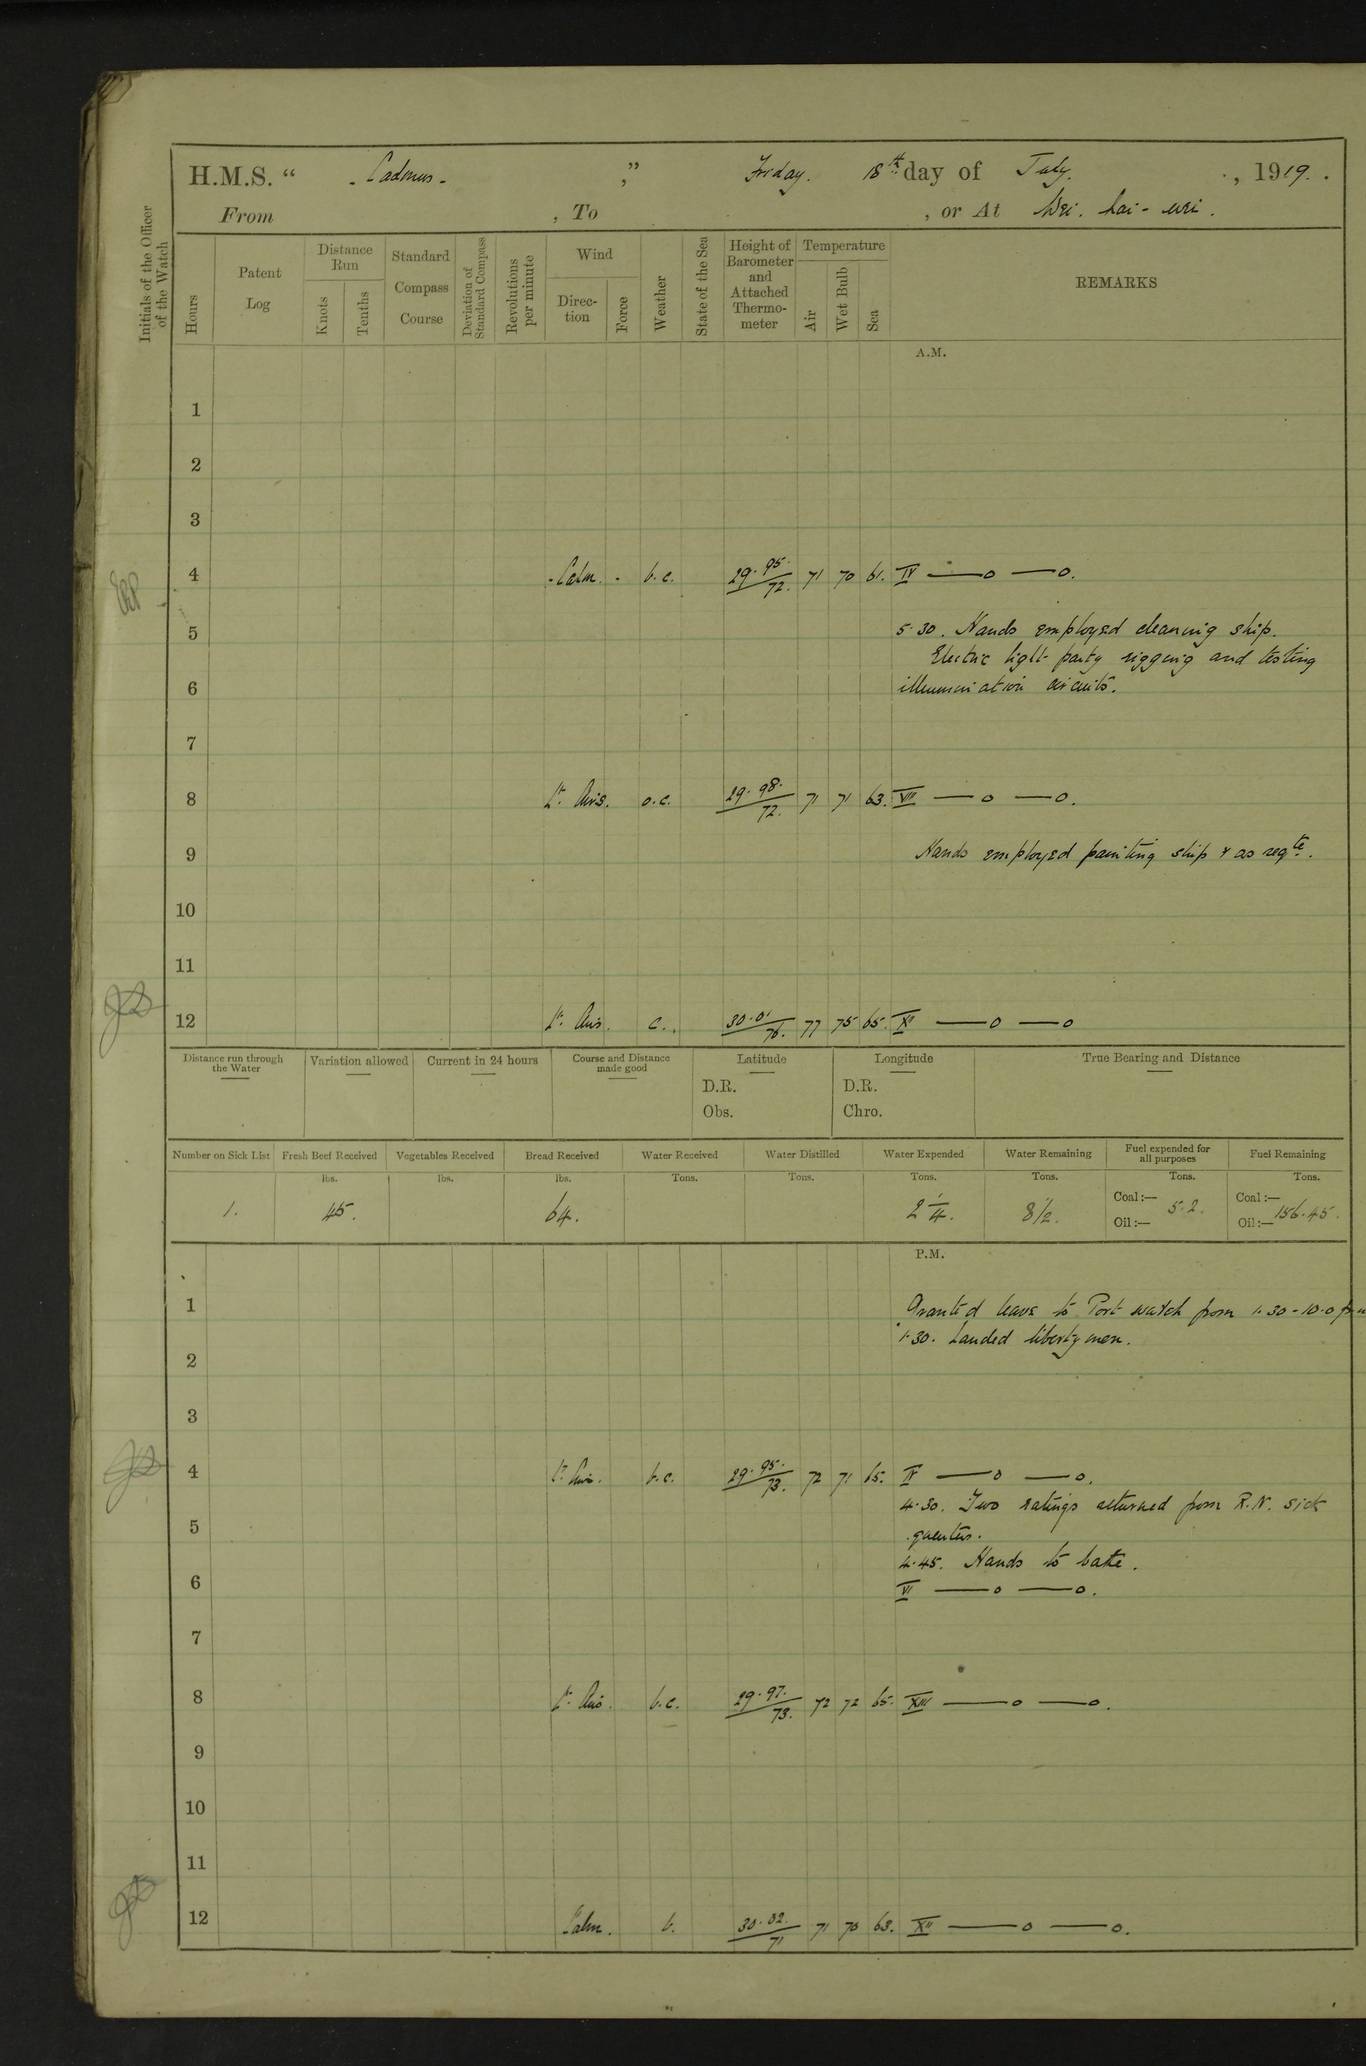 H.M.S. “ Cadmus. ,” Friday. 18th day of July. , 1919.
From , To , or At Wei. hai-wei.
Initials of the Officer of the Watch
Hours
Patent Log
Distance Run
Knots
Tenths
Standard Compass Course
Deviation of Standard Compass
Revolutions per minute
Wind
Direction
Force
Weather
State of the Sea
Height of Barometer and Attached Thermometer
Temperature
Air
Wet Bulb
Sea
REMARKS
A.M.
1
2
3
4 Calm. - b.c. 29.95./72. 71 70 61. IV ——o ——o.
5 5.30. Hands employed cleaning ship.
Electric light party rigging and testing
6 illumination circuits.
7
8 Lt. Airs. o.c. 29.98./72. 71 71 63. VIII ——o ——o.
9 Hands employed painting ship & as reqte.
10
11
12 Lt. Airs. c. 30.01/76. 77 75 65. XII ——o ——o
Distance run through the Water
Variation allowed
Current in 24 hours
Course and Distance made good
Latitude
D.R.
Obs.
Longitude
D.R.
Chro.
True Bearing and Distance
Number on Sick List
1.
Fresh Beef Received
lbs.
45.
Vegetables Received
lbs.
Bread Received
lbs.
64.
Water Received
Tons.
Water Distilled
Tons.
Water Expended
Tons.
2 1/4.
Water Remaining
Tons.
8 1/2.
Fuel expended for all purposes
Tons.
Coal:— 5.2.
Oil:—
Fuel Remaining
Tons.
Coal:— 156.45.
Oil:—
P.M.
1 Granted leave to Port watch from 1.30-10.0 pm
1.30. Landed liberty men.
2
3
4 Lt. Airs. b.c. 29.95./73. 72 71 65. IV ——o ——o.
4.30. Two ratings returned from R.N. sick
5 quarters.
4.45. Hands to bathe.
6 VI ——o ——o.
7
8 Lt. Airs. b.c. 29.97./73. 72 72 65. XIII ——o ——o.
9
10
11
12 Calm. b. 30.02./71 71 70 63. XII ——o ——o.